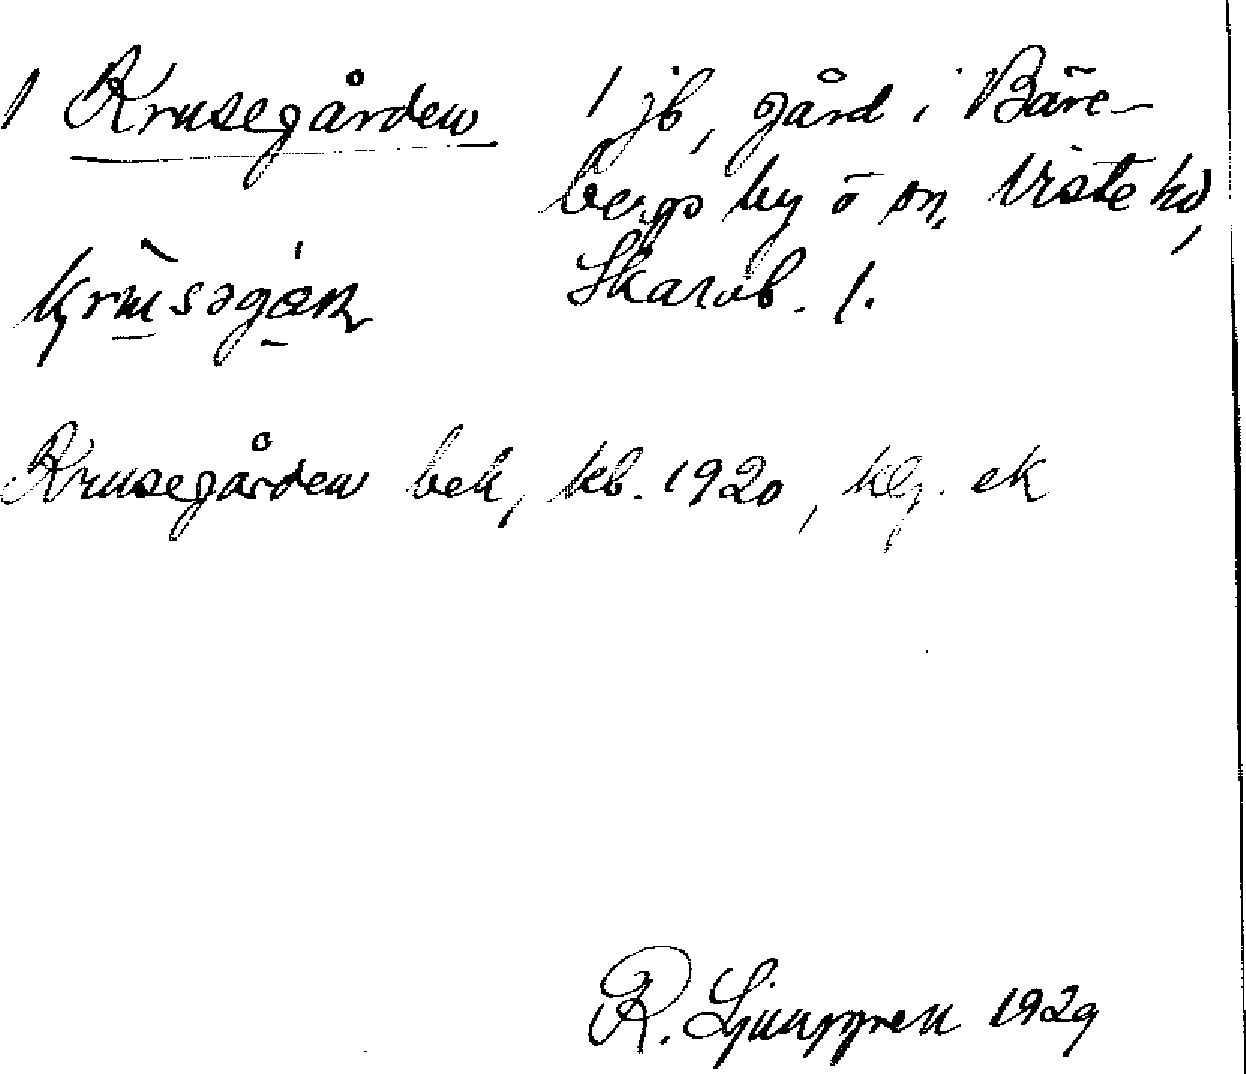 1 Krusegården 1 jb, gård i Bäre-
bergs by o sn, Viste hd,
Skarab. l.
krùsəgáɳ
Krusegården bek, kb. 1920, klg. ek
R. Ljunggren 1929